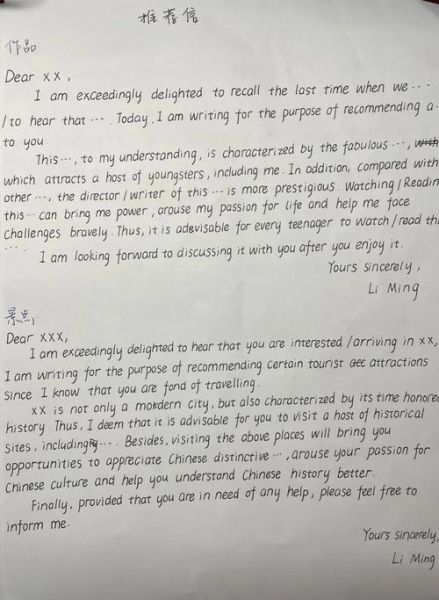 推荐信
作品
Dear x x ,
I am exceedingly delighted to recall the last time when we ...
/ to hear that .... Today, I am writing for the purpose of recommending a
to you
This ..., to my understanding, is characterized by the fabulous ...,
which attracts a host of youngsters, including me. In addition, compared with
other ..., the director / writer of this ... is more prestigious. Watching / Readin
this ... can bring me power, arouse my passion for life and help me face
challenges bravely. Thus, it is adevisable for every teenager to watch / read th
....
I am looking forward to discussing it with you after you enjoy it.
Yours sincerely,
Li Ming
景点:
Dear xxx,
I am exceedingly delighted to hear that you are interested / arriving in xx,
I am writing for the purpose of recommending certain tourist attractions
since I know that you are fond of travelling.
xx is not only a mordern city, but also characterized by its time honored
history. Thus, I deem that it is advisable for you to visit a host of historical
sites, including .... Besides, visiting the above places will bring you
opportunities to appreciate Chinese distinctive ..., arouse your passion for
Chinese culture and help you understand Chinese history better.
Finally, provided that you are in need of any help, please feel free to
inform me.
Yours sincerely,
Li Ming